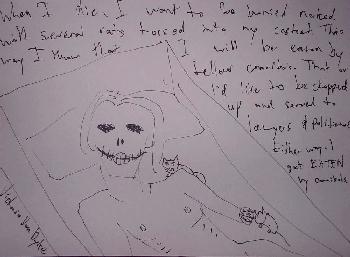 When I die, I want to be buried naked
with several rats tossed into my casket. This
way I know that I will be eaten by
fellow cannibals. That or
I'd like to be chopped
up and served to
lawyers & politicians
Either way I
get EATEN
by cannibals